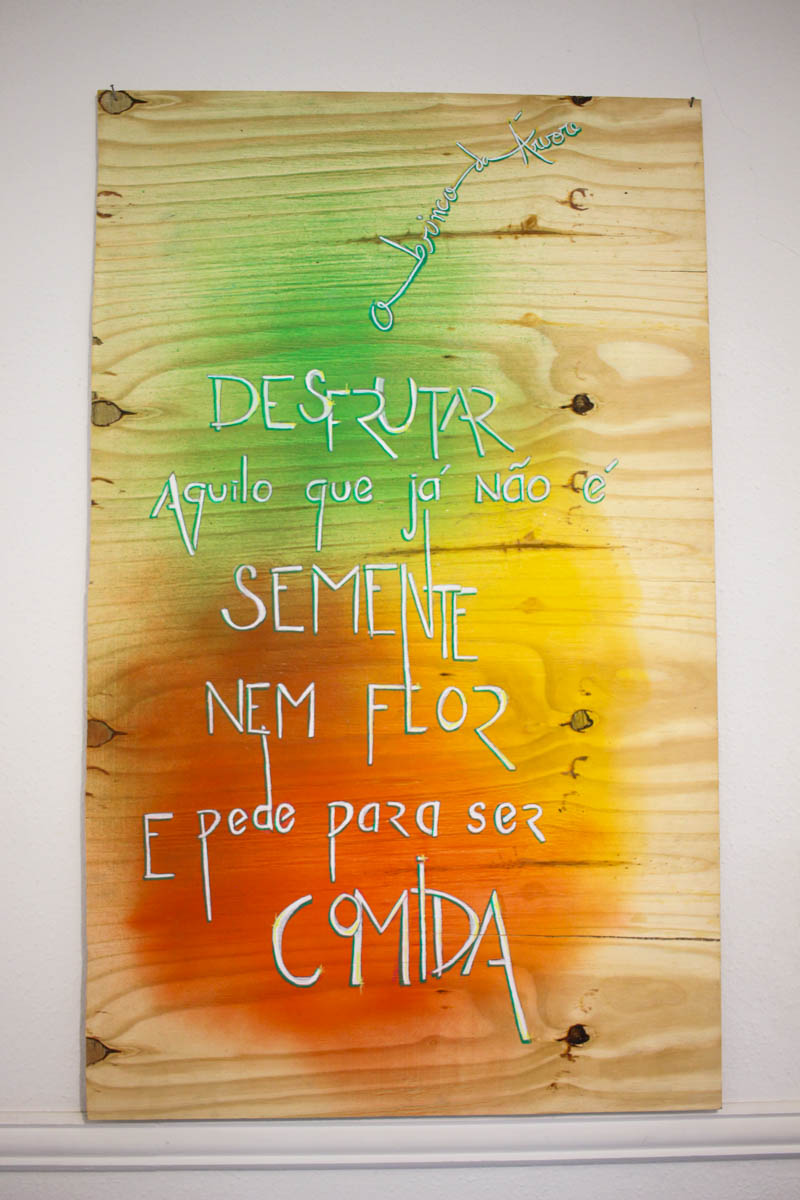 O brinco da Árvore
DESFRUTAR
Aquilo que já não é
SEMENTE
NEM FLOR
E pede para ser
COMIDA